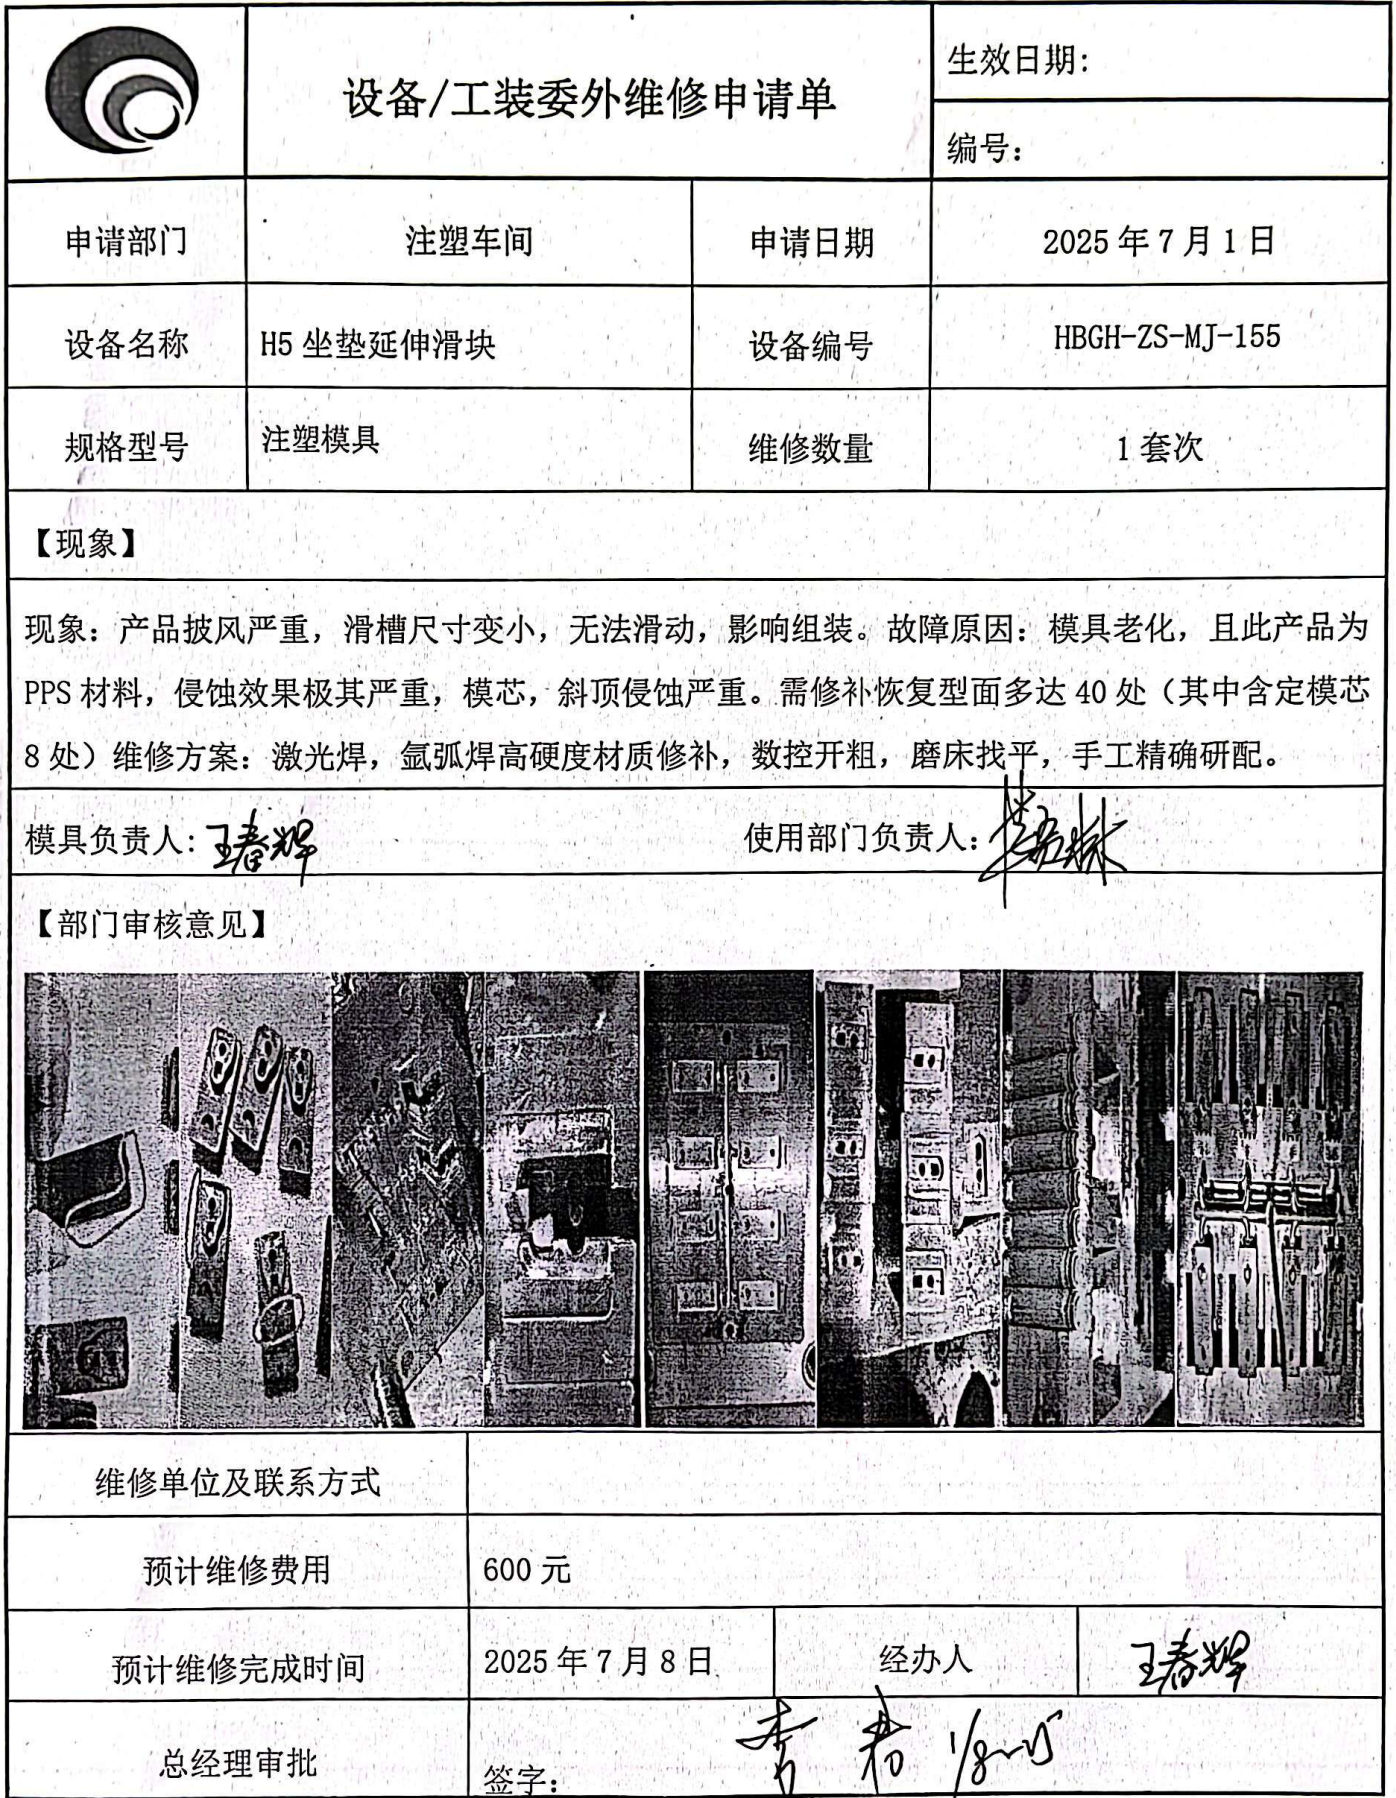 设备/工装委外维修申请单
生效日期:
编号:
申请部门 注塑车间 申请日期 2025年7月1日
设备名称 H5坐垫延伸滑块 设备编号 HBGH-ZS-MJ-155
规格型号 注塑模具 维修数量 1套次
【现象】
现象：产品披风严重，滑槽尺寸变小，无法滑动，影响组装。故障原因：模具老化，且此产品为
PPS材料，侵蚀效果极其严重，模芯，斜顶侵蚀严重。需修补恢复型面多达40处（其中含定模芯
8处）维修方案：激光焊，氩弧焊高硬度材质修补，数控开粗，磨床找平，手工精确研配。
模具负责人：王春辉 使用部门负责人：
【部门审核意见】
维修单位及联系方式
预计维修费用 600元
预计维修完成时间 2025年7月8日 经办人 王春辉
总经理审批 签字：